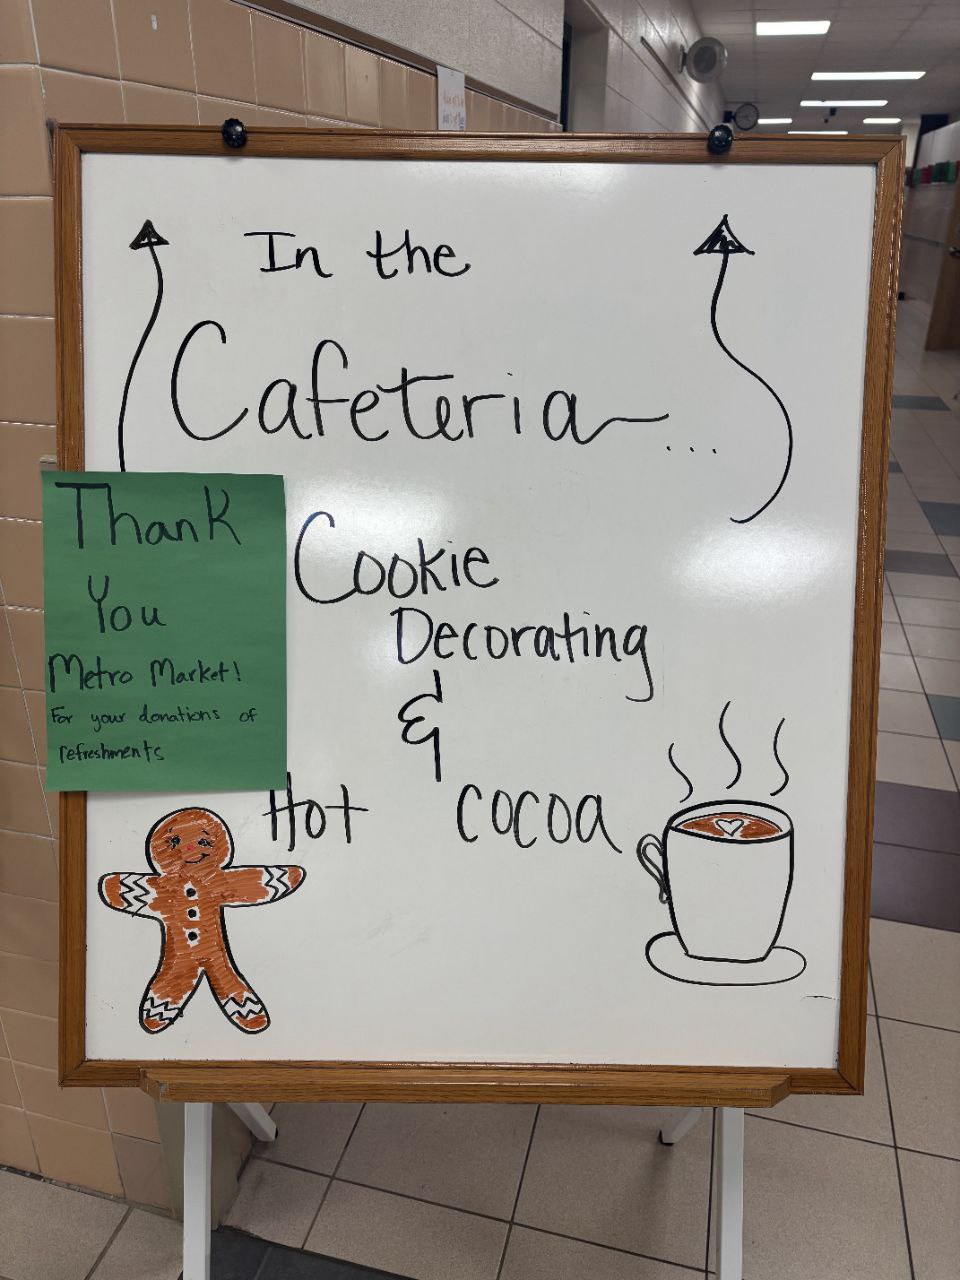 In the
Cafeteria...
Thank
You
Metro Market!
For your donations of
refreshments
Cookie
Decorating
&
Hot cocoa